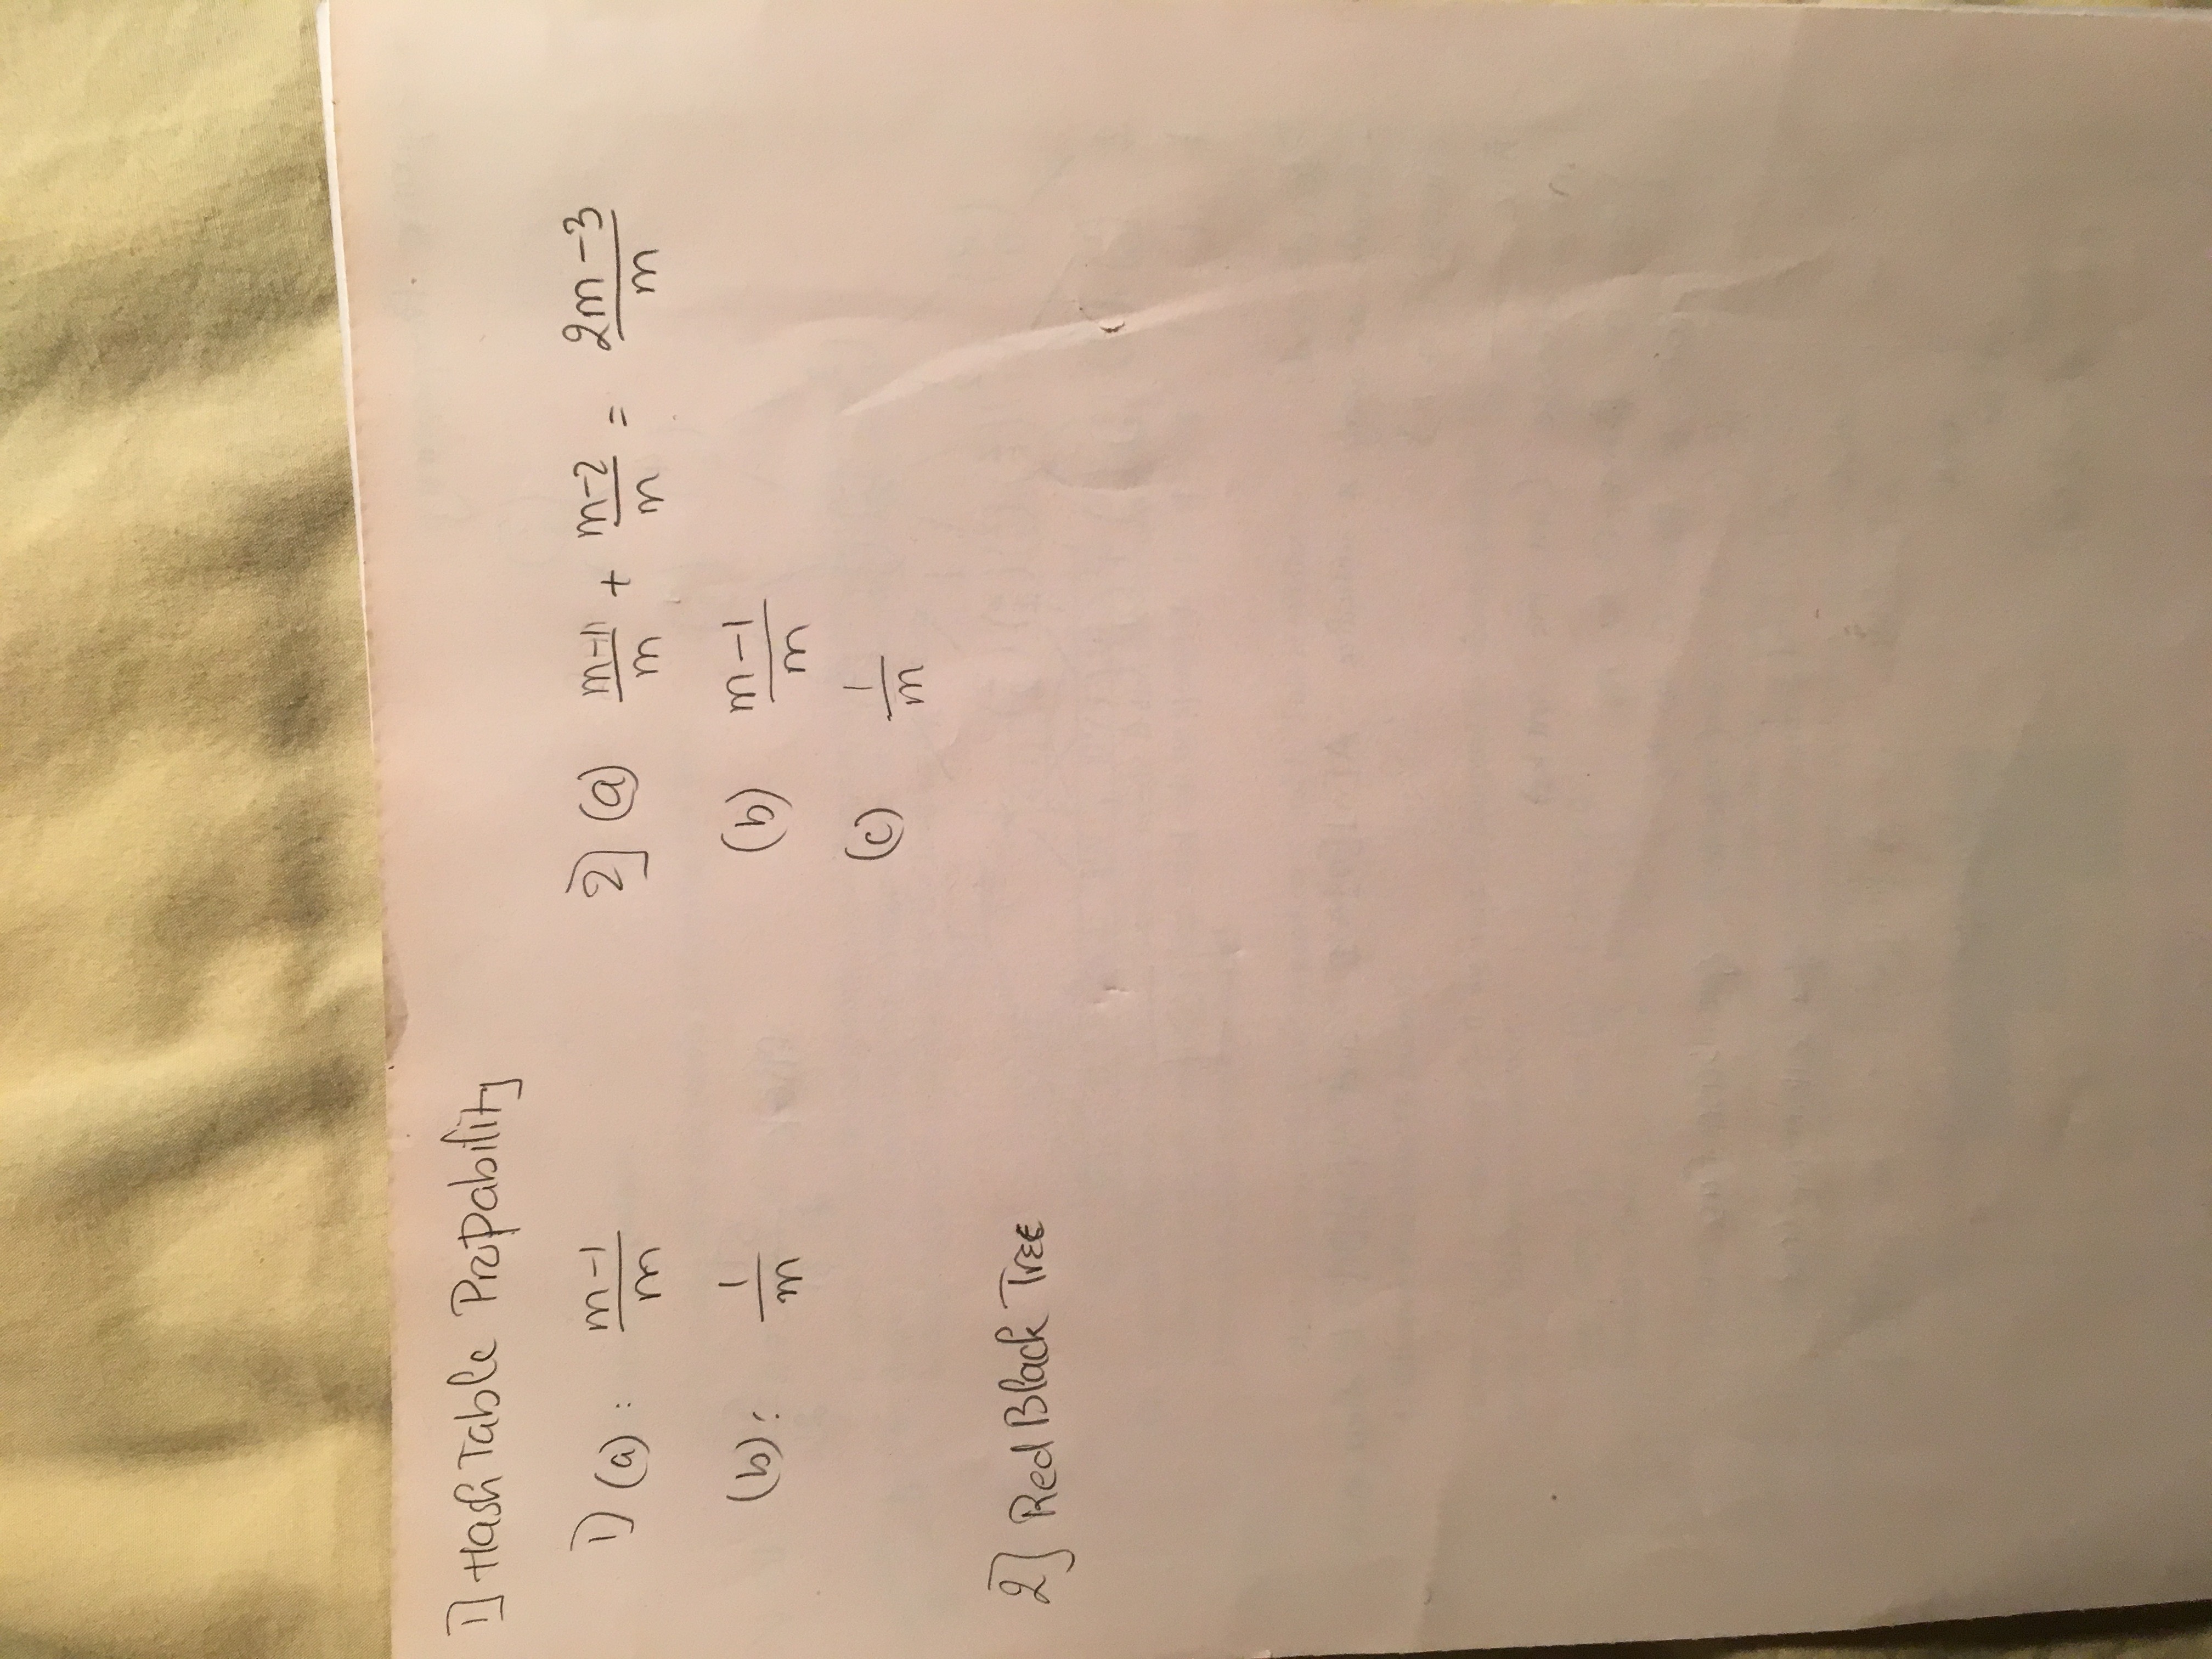 1] Hash Table Propability
1) (a): m-1/m
2] (a) m-1/m + m-2/m = 2m-3/m
(b): 1/m
(b) m-1/m
(c) 1/m
2] Red Black Tree